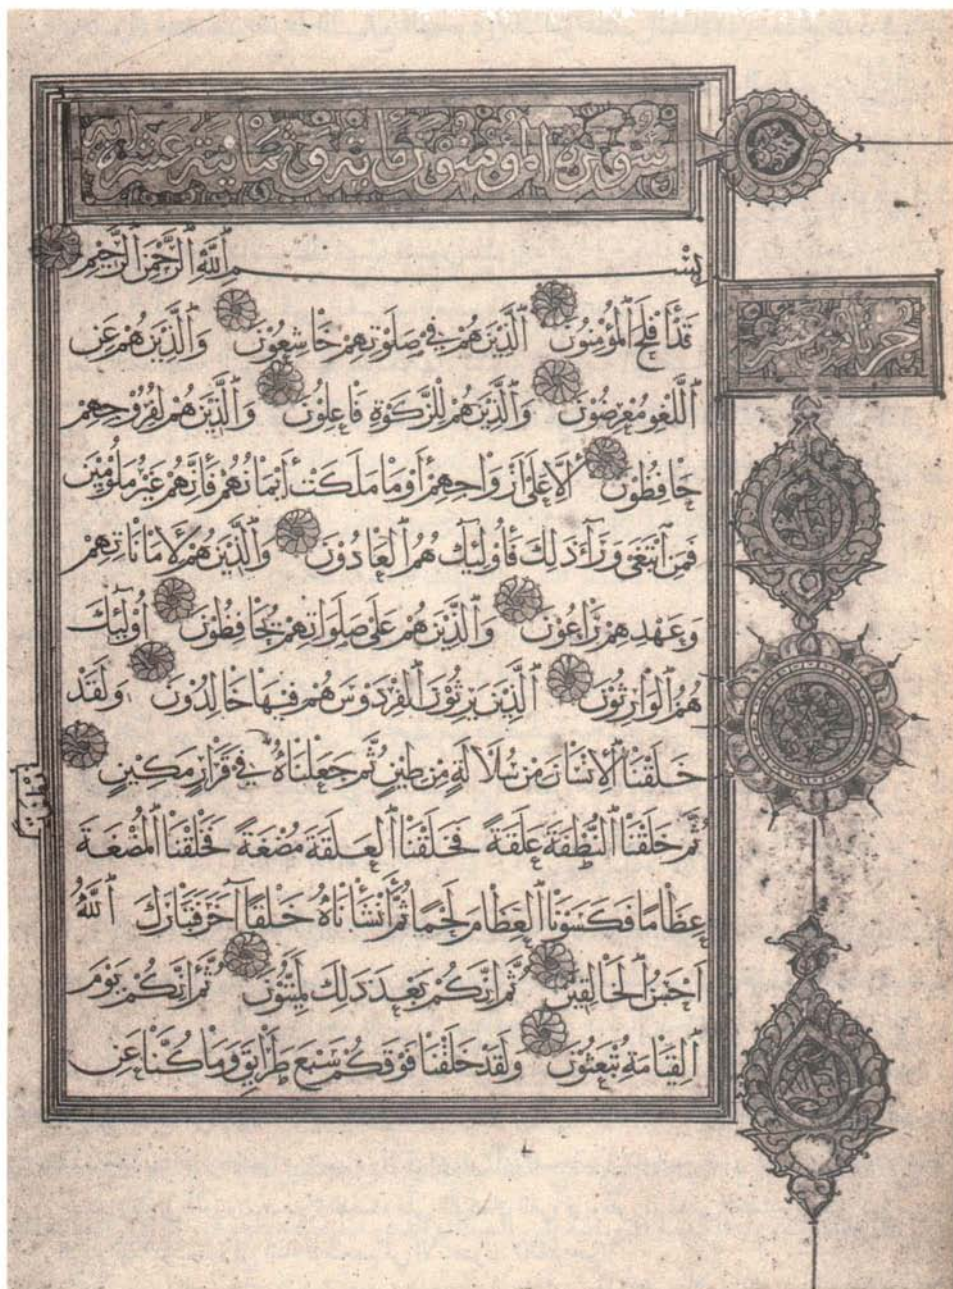 سورة المؤمنون مائة وثمانية عشر آية
بِسْمِ اللَّهِ الرَّحْمَنِ الرَّحِيمِ
قَدْ أَفْلَحَ الْمُؤْمِنُونَ الَّذِينَ هُمْ فِي صَلَوتِهِمْ خَاشِعُونَ وَالَّذِينَ هُمْ عَنِ
اللَّغْوِ مُعْرِضُونَ وَالَّذِينَ هُمْ لِلزَّكَوةِ فَاعِلُونَ وَالَّذِينَ هُمْ لِفُرُوجِهِمْ
حَافِظُونَ إِلَّا عَلَى أَزْوَاجِهِمْ أَوْ مَا مَلَكَتْ أَيْمَانُهُمْ فَإِنَّهُمْ غَيْرُ مَلُومِينَ
فَمَنِ ابْتَغَى وَرَاءَ ذَلِكَ فَأُولَئِكَ هُمُ الْعَادُونَ وَالَّذِينَ هُمْ لِأَمَانَاتِهِمْ
وَعَهْدِهِمْ رَاعُونَ وَالَّذِينَ هُمْ عَلَى صَلَوَاتِهِمْ يُحَافِظُونَ أُولَئِكَ
هُمُ الْوَارِثُونَ الَّذِينَ يَرِثُونَ الْفِرْدَوْسَ هُمْ فِيهَا خَالِدُونَ وَلَقَدْ
خَلَقْنَا الْإِنْسَانَ مِنْ سُلَالَةٍ مِنْ طِينٍ ثُمَّ جَعَلْنَاهُ فِي قَرَارٍ مَكِينٍ
ثُمَّ خَلَقْنَا النُّطْفَةَ عَلَقَةً فَخَلَقْنَا الْعَلَقَةَ مُضْغَةً فَخَلَقْنَا الْمُضْغَةَ
عِظَامًا فَكَسَوْنَا الْعِظَامَ لَحْمًا ثُمَّ أَنْشَأْنَاهُ خَلْقًا آخَرَ فَتَبَارَكَ اللَّهُ
أَحْسَنُ الْخَالِقِينَ ثُمَّ إِنَّكُمْ بَعْدَ ذَلِكَ لَمَيِّتُونَ ثُمَّ إِنَّكُمْ يَوْمَ
الْقِيَامَةِ تُبْعَثُونَ وَلَقَدْ خَلَقْنَا فَوْقَكُمْ سَبْعَ طَرَائِقَ وَمَا كُنَّا عَنِ